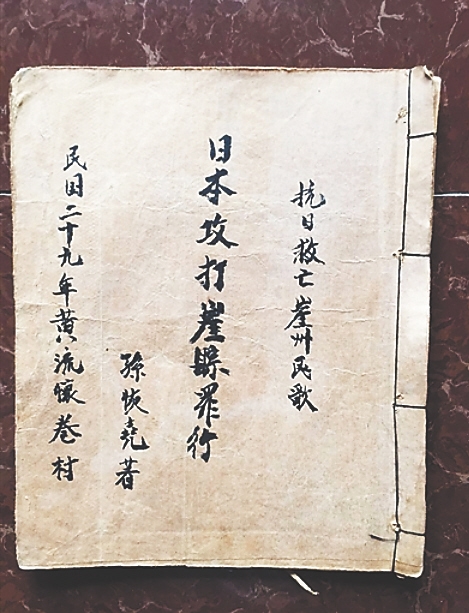 抗日救亡崖州民歌
日本攻打崖縣罪行
孫恢堯著
民国二十九年黄流懷卷村